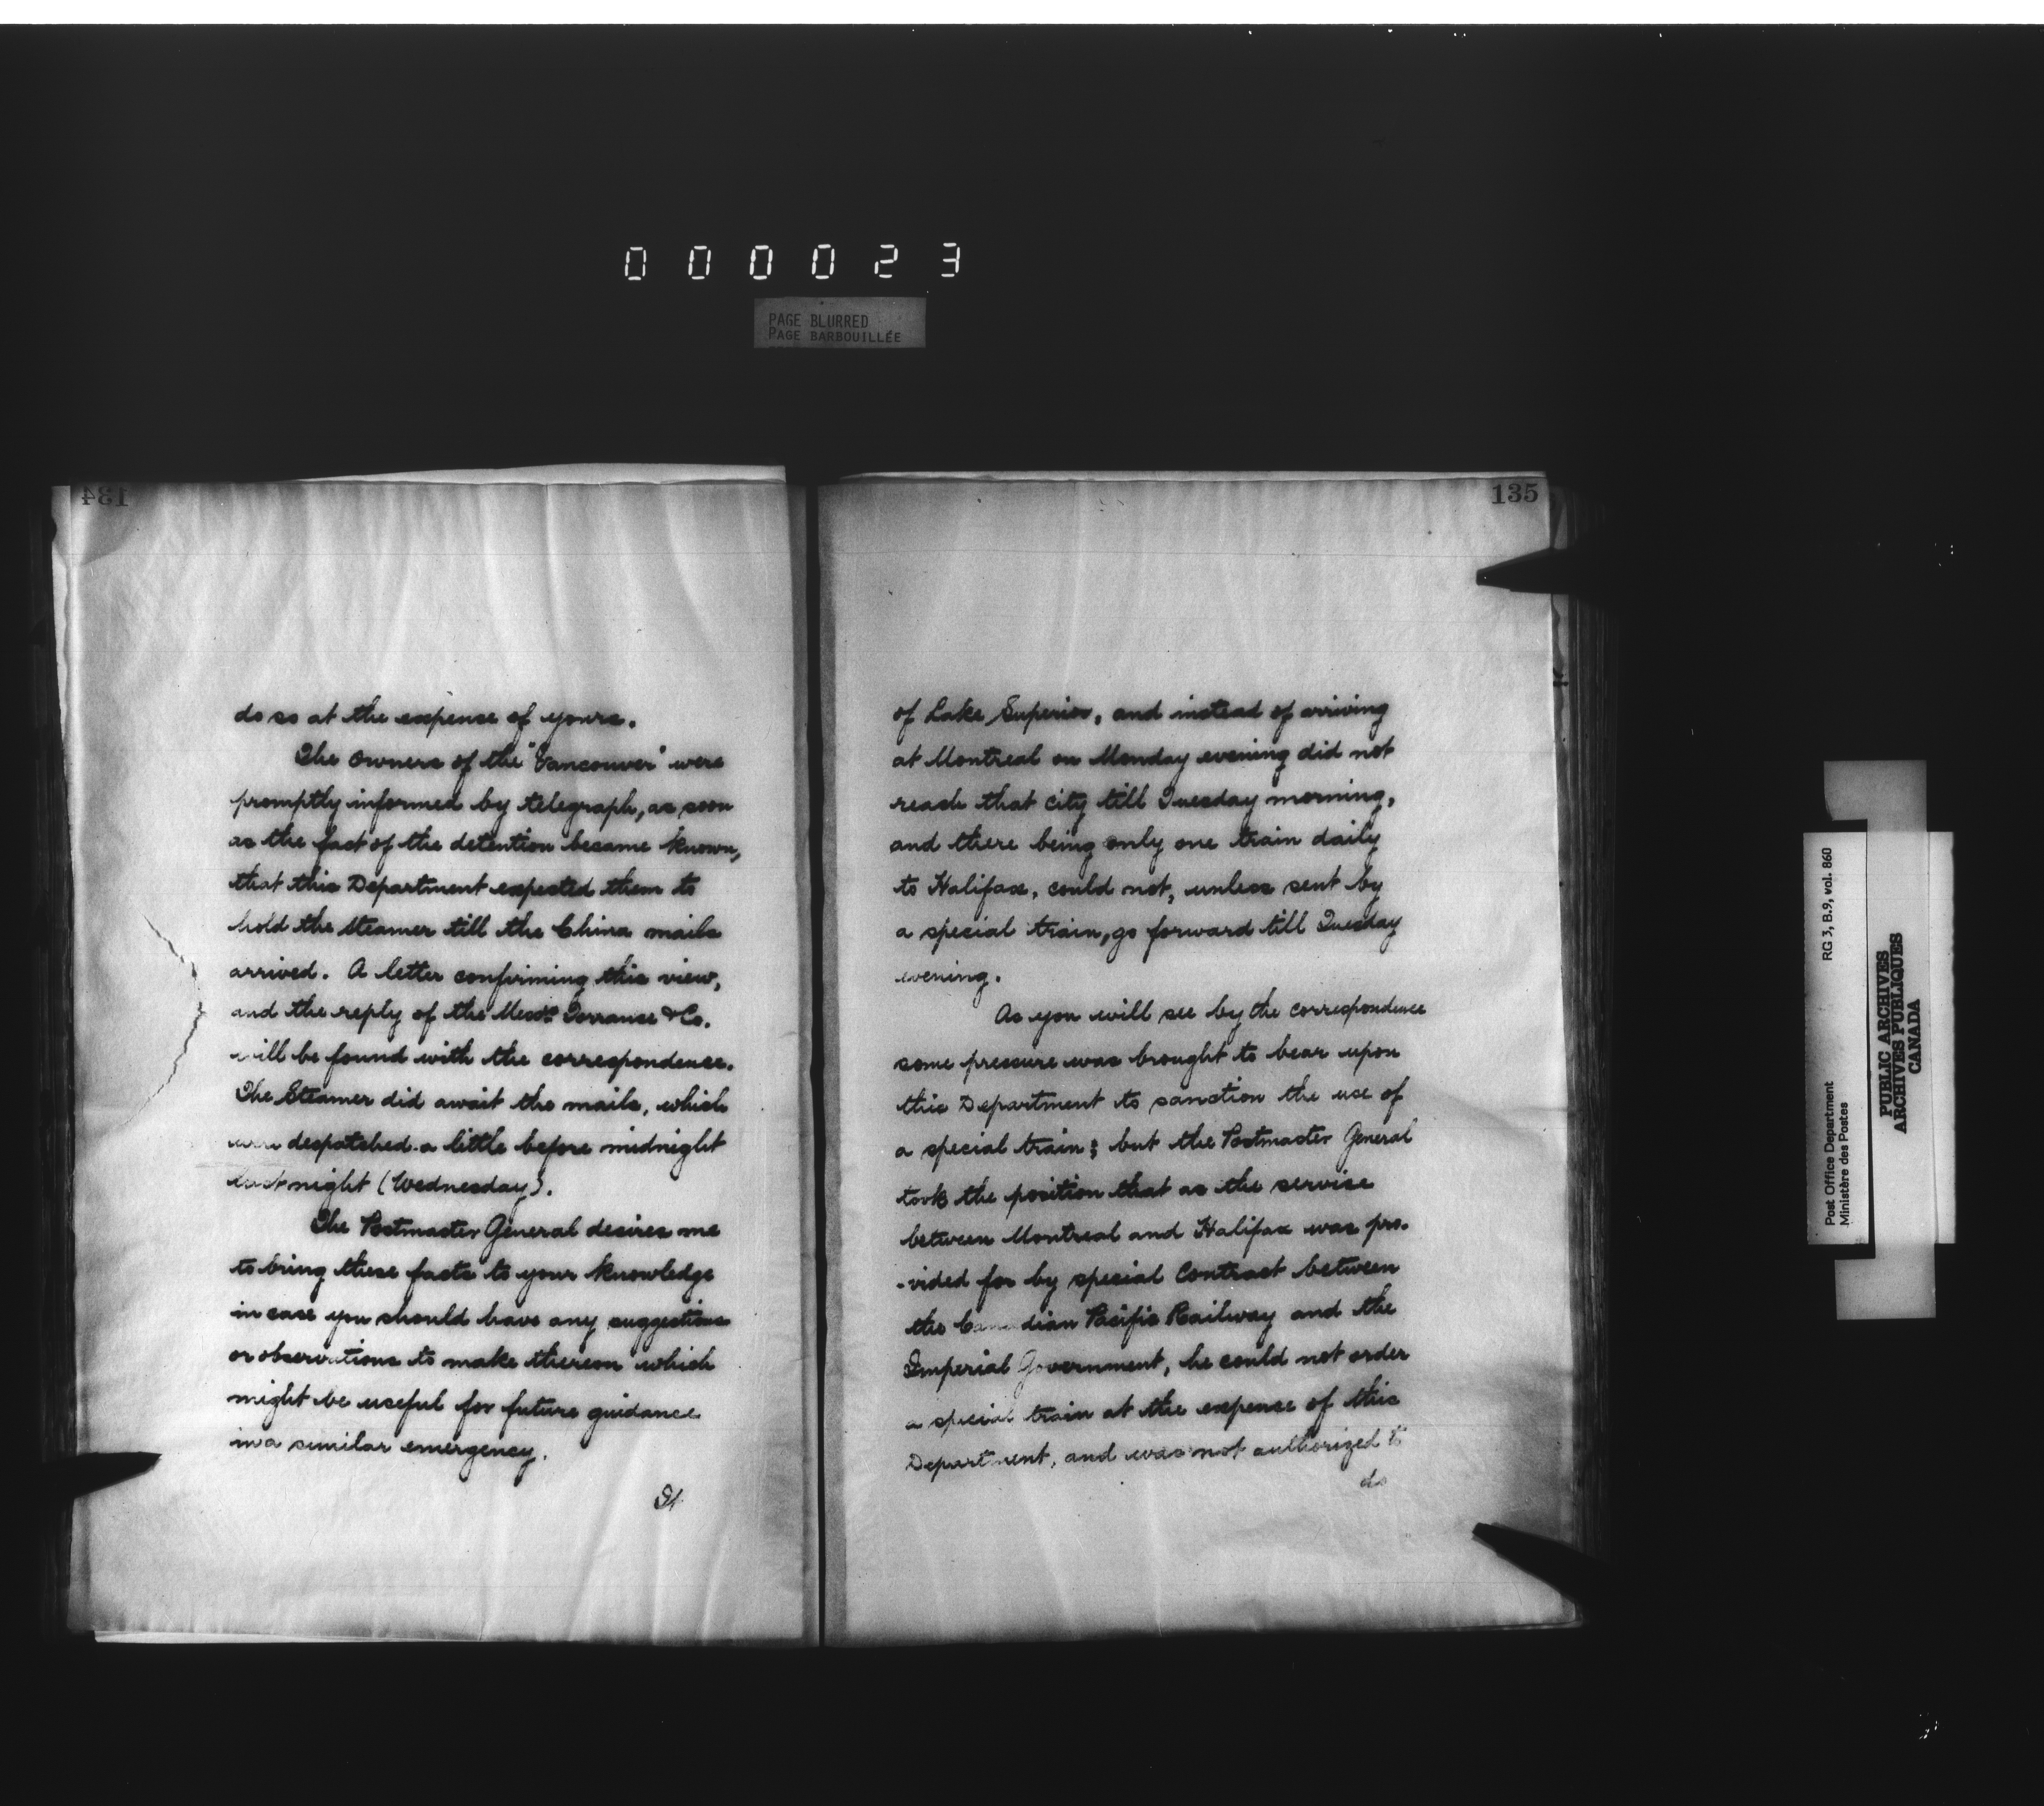 0 0 0 0 2 3
PAGE BLURRED
PAGE BARBOUILLÉE
134
do so at the expense of yours.
The Owners of the "Vancouver" were
promptly informed by telegraph, as soon
as the fact of the detention became known,
that this Department expected them to
hold the steamer till the China mails
arrived. A letter confirming this view,
and the reply of the Messrs Torrance & Co.
will be found with the correspondence.
The Steamer did await the mails, which
were despatched a little before midnight
last night (Wednesday).
The Postmaster General desires me
to bring these facts to your knowledge
in case you should have any suggestions
or observations to make thereon which
might be useful for future guidance
in a similar emergency.
135
of Lake Superior, and instead of arriving
at Montreal on Monday evening did not
reach that city till Tuesday morning,
and there being only one train daily
to Halifax, could not, unless sent by
a special train, go forward till Tuesday
evening.
As you will see by the correspondence
some pressure was brought to bear upon
this Department to sanction the use of
a special train; but the Postmaster General
took the position that as the service
between Montreal and Halifax was pro-
-vided for by special Contract between
the Canadian Pacific Railway and the
Imperial Government, he could not order
a special train at the expense of this
Department, and was not authorized to
do
RG 3, B.9, vol. 860
Post Office Department
Ministère des Postes
PUBLIC ARCHIVES
ARCHIVES PUBLIQUES
CANADA